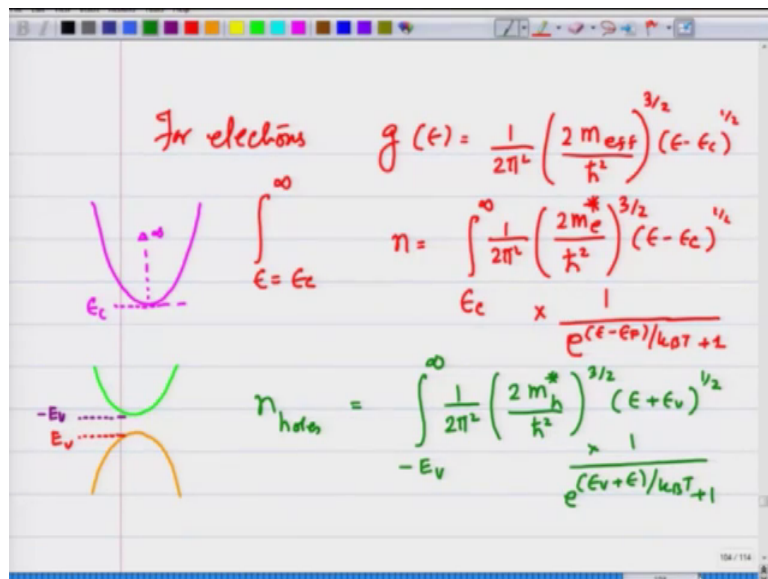 For elections
g (ε) = 1/2π² (2 m eff/ħ²)^3/2 (ε - εc)^1/2
∫_{ε = εc}^{∞}
n = ∫_{εc}^{∞} 1/2π² (2m*e/ħ²)^3/2 (ε - εc)^1/2
× 1/e^(ε-εF)/kBT +1
εc
∞
n holes = ∫_{-Ev}^{∞} 1/2π² (2 m*h/ħ²)^3/2 (ε + Ev)^1/2
× 1/e^(Ev+ε)/kBT +1
-Ev
Ev
104 / 114